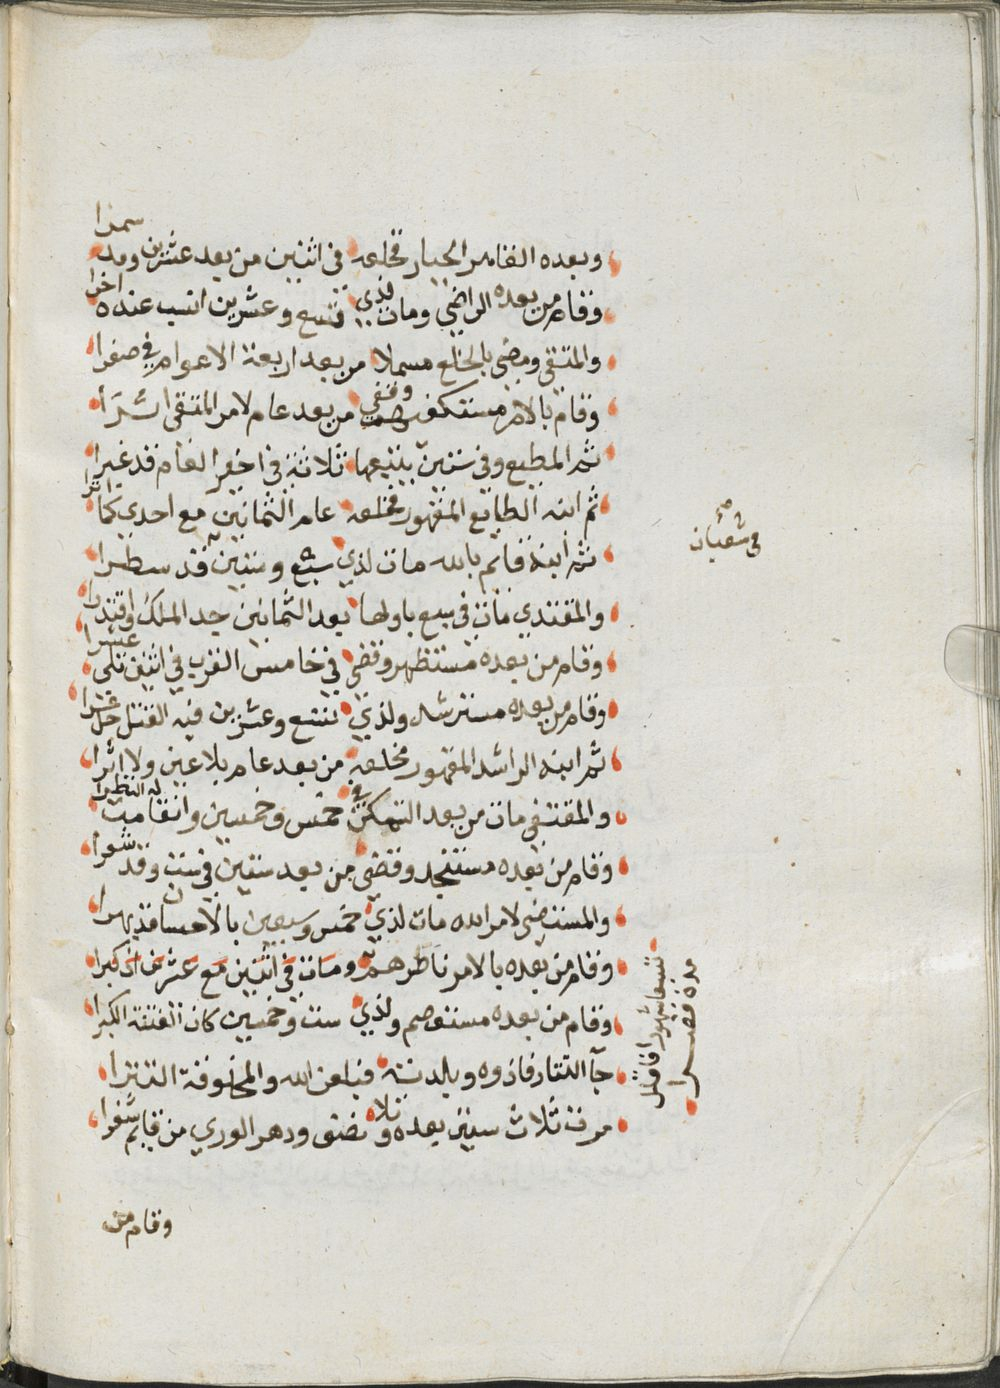 وبعده القاهر الجبار مخلعه في اثنين من بعد عشرين وقد سمرا
وقام من بعده الراضي ومات لذي تسع وعشرين انسب عنده اخرا
والمتقي ومضى بالخلع مسملا من بعد اربعة الاعوام في صفرا
وقام بالامر مستكفيهم وقفي من بعد عام لامر المتقي اثرا
ثم المطيع وفي ستين يتبعها ثلاثة في اخير العام قد غبرا
ثم ابنه الطايع المقهور مخلعه عام الثمانين مع احدي كما اثرا
ثم ابنه قايم بالله مات لذي سبع وستين قد سطرا
في شعبان صح
والمقتدي مات في سبع باولها بعد الثمانين جد الملك واقتدرا
وقام من بعده مستظهر وقضى في خامس القرن في اثنين تلي عشرا
وقام من بعده مسترشد ولذي تسع وعشرين فيه القتل حل عرا
ثم ابنه الراشد المقهور مخلعه من بعد عام بلا عين ولا اثرا
والمقتفي مات من بعد التمكن في خمس وخمسين وانقادت له النظرا
وقام من بعده مستنجد وقضى من بعد ستين في ست وقد شعرا
والمستضى لامر الله مات لذي خمس وسبعين بالاحسان قد بهرا
وقام من بعده بالامر ناصرهم ومات في اثنين مع عشرين اذ كبرا
تسعا شهورا فاقلل
مدة قصرا
وقام من بعده مستعصم ولذي ست وخمسين كان الفتنة الكبرا
جآ التتار فاردوه وبلدته فيلعن الله والمخلوقة التترا
مرت ثلاث سنين بعده وتلا نصف ودهر الوري من قايم شغرا
وقام من